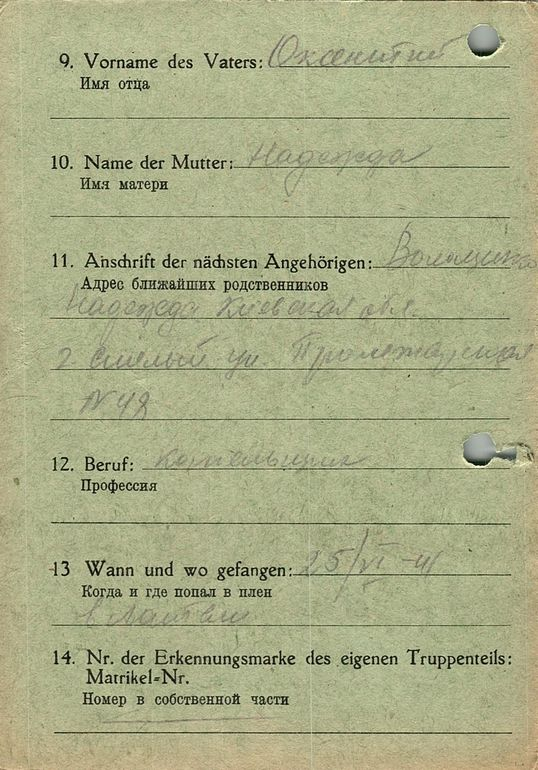 9. Vorname des Vaters:
Имя отца
10. Name der Mutter: Надежда
Имя матери
11. Anschrift der nächsten Angehörigen: Волошина
Адрес ближайших родственников
Надежда Киевская обл.
г Смелый ул. Пролетарская
N 48
12. Beruf: котельщик
Профессия
13 Wann und wo gefangen: 25/VI-41
Когда и где попал в плен
в Латвии
14. Nr. der Erkennungsmarke des eigenen Truppenteils:
Matrikel=Nr.
Номер в собственной части